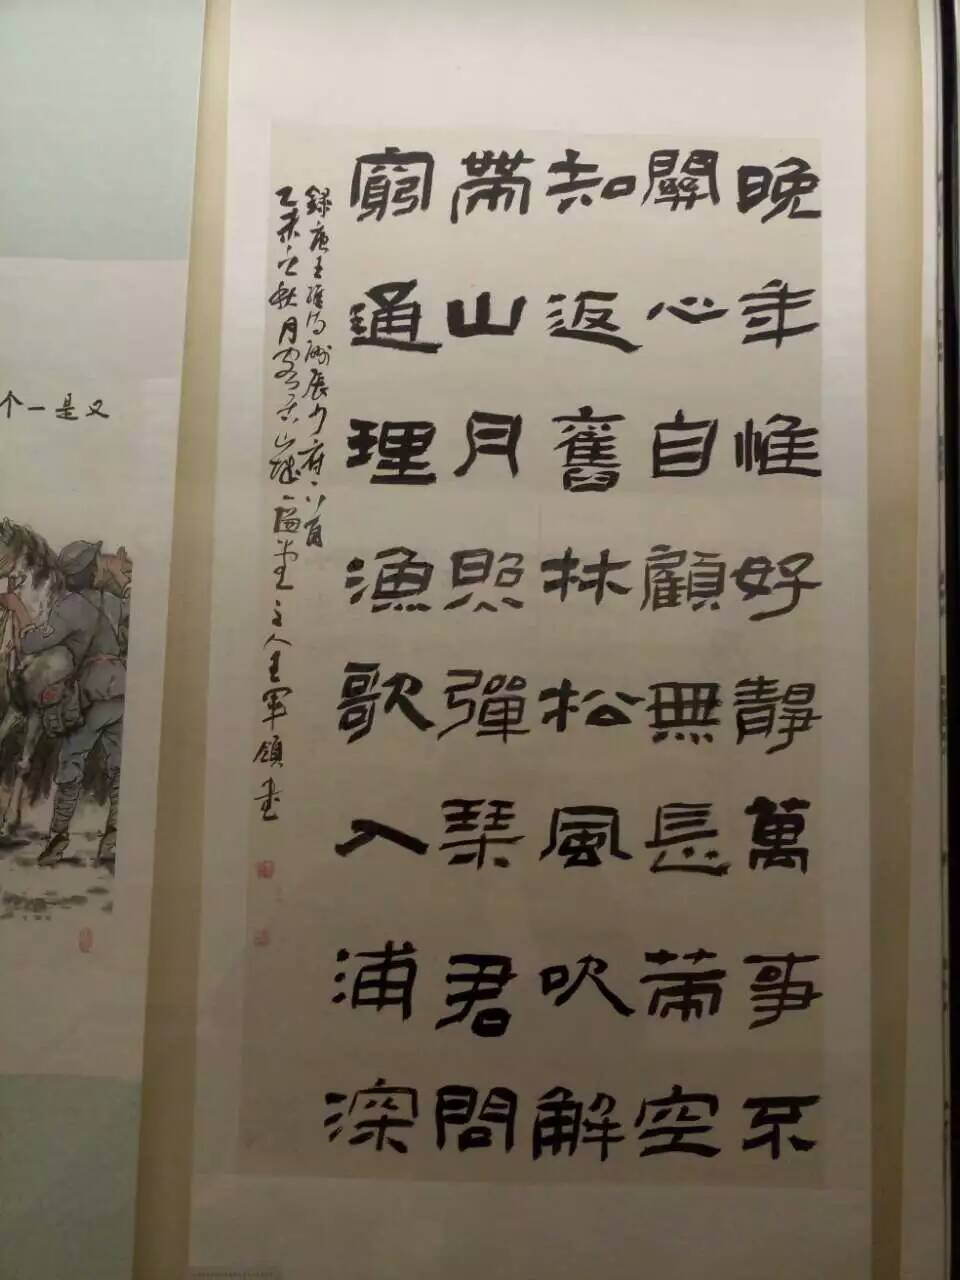 晚年惟好靜萬事不
關心自顧無長策空
知返舊林松風吹解
帶山月照彈琴君問
窮通理漁歌入浦深
錄唐王維詩酬張少府一首
乙未之秋月主人王軍領書
又是一个